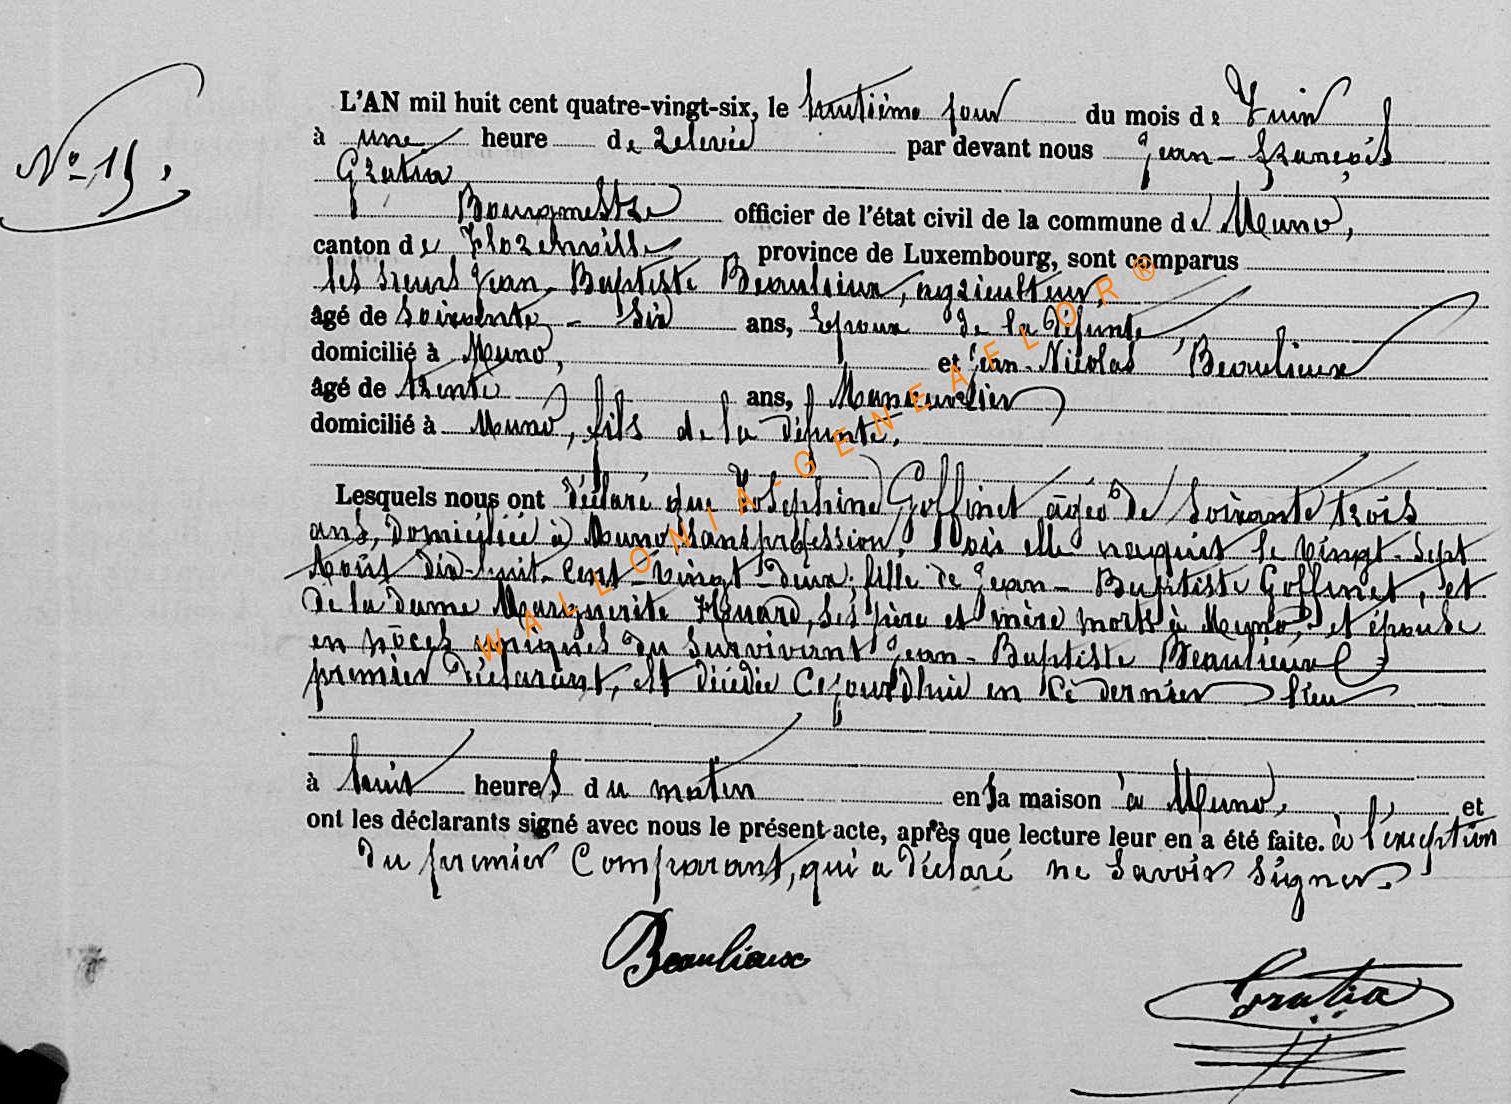 N° 15,
L'AN mil huit cent quatre-vingt-six, le huitième jour du mois de Juin
à une heure de relevée par devant nous Jean-François
Gratia
Bourgmestre officier de l'état civil de la commune de Muno,
canton de Florenville province de Luxembourg, sont comparus
les sieurs Jean-Baptiste Beaulieux, agriculteur,
âgé de soixante-six ans, Epoux de la défunte
domicilié à Muno, et Jean-Nicolas Beaulieux
âgé de trente ans, Manouvrier
domicilié à Muno, fils de la défunte.
Lesquels nous ont déclaré que Josephine Goffinet âgée de soixante trois
ans, domiciliée à Muno sans profession, où elle naquit le vingt-sept
Août dix-huit-cent-vingt-deux, fille de Jean-Baptiste Goffinet, et
de la dame Marguerite, ses père et mère morts à Muno, et épouse
en nôces uniques du survivant Jean-Baptiste Beaulieux
premier déclarant, est décédée cejourd'hui en ce dernier lieu
à huit heures du matin en sa maison à Muno, et
ont les déclarants signé avec nous le présent acte, après que lecture leur en a été faite. à l'exception
du premier comparant, qui a déclaré ne savoir signer.
Beaulieux
Gratia
WALLONIA-GENEAELOR®